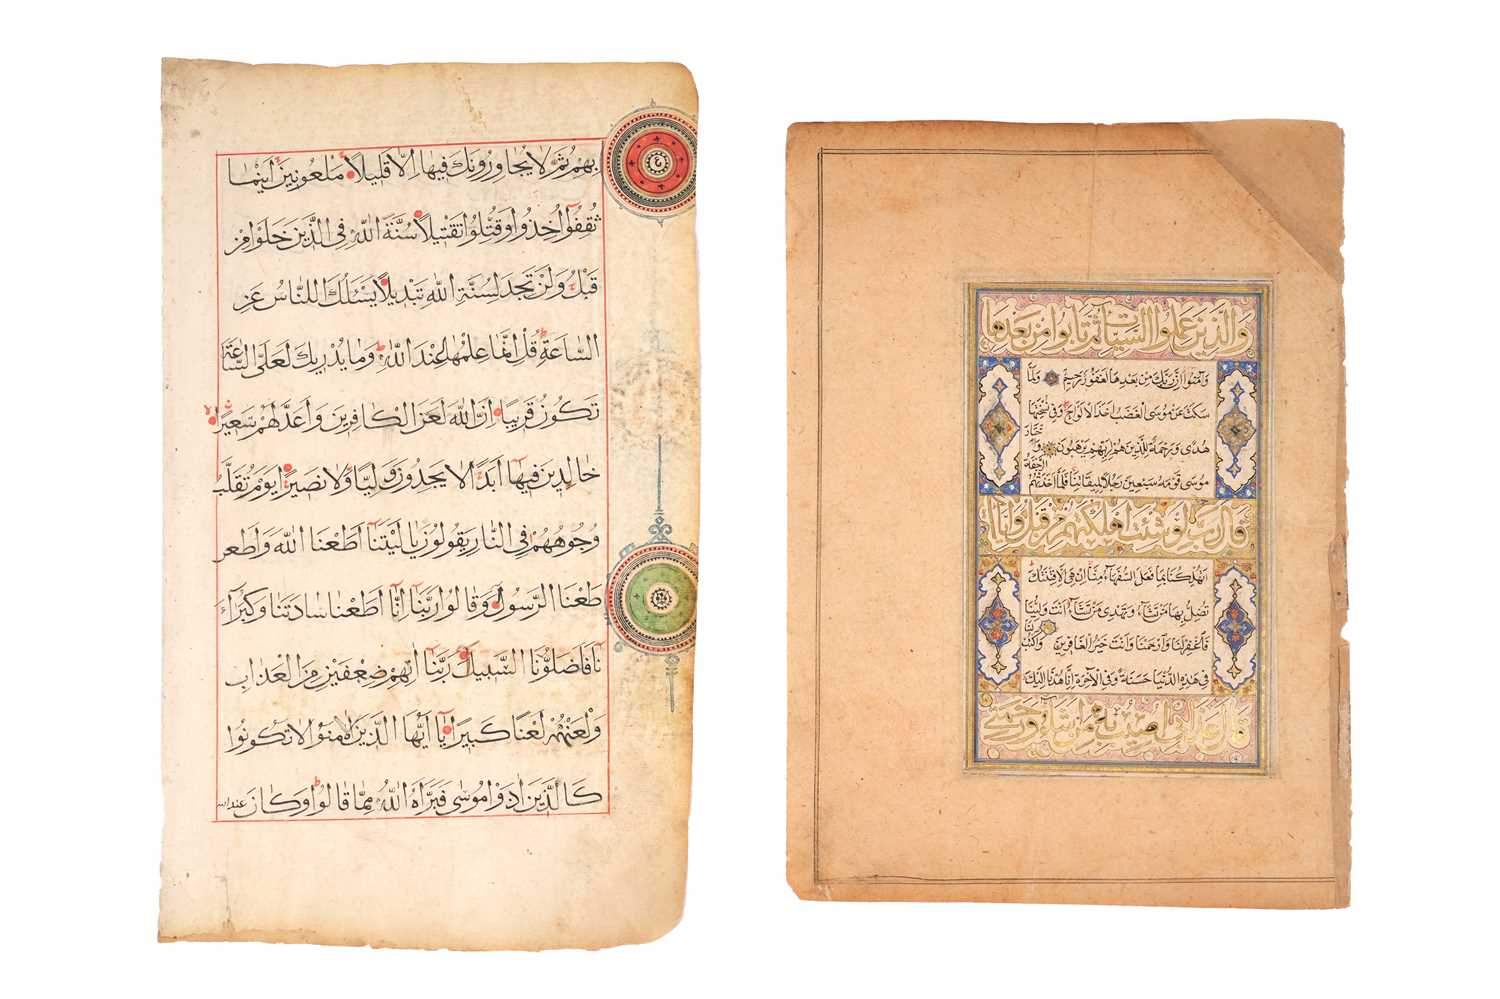 بهم ثم لا يجاورونك فيها الا قليلا ملعونين اينما
ثقفوا اخذوا وقتلوا تقتيلا سنة الله في الذين خلوا من
قبل ولن تجد لسنة الله تبديلا يسلك الناس عن
الساعة قل انما علمها عند الله وما يدريك لعل الساعة
تكون قريبا ان الله لعن الكافرين واعد لهم سعيرا
خالدين فيها ابدا لا يجدون وليا ولا نصيرا يوم تقلب
وجوههم في النار يقولون يا ليتنا اطعنا الله واطعر
طعنا الرسول وقالوا ربنا انا اطعنا سادتنا وكبراء
نا فاضلونا السبيل ربنا اتهم ضعفين من العذاب
والعنهم لعنا كبيرا يا ايها الذين امنوا لا تكونوا
كالذين اذوا موسى فبراه الله مما قالوا وكان عند الله
والذين عملوا السيات ثم تابوا من بعدها
وامنوا ان ربك من بعدها لغفور رحيم ولما
سكت عن موسى الغضب اخذ الالواح وفي نسختها
هدى ورحمة للذين هم لربهم يرهبون واختار
موسى قومه سبعين رجلا لميقاتنا فلما اخذتهم الرجفة
قال رب لو شئت اهلكتهم من قبل واياى
اتهلكنا بما فعل السفهاء منا ان هي الا فتنتك
تضل بها من تشاء وتهدي من تشاء انت ولينا
فاغفر لنا وارحمنا وانت خير الغافرين واكتب لنا
في هذه الدنيا حسنة وفي الاخرة انا هدنا اليك
قال عذابي اصيب به من اشاء ورحمتي